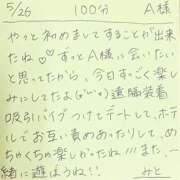 5/26 100分 A様
やっと初めましてすることが出来
たね♡♡ずっとA様に会いたい
と思ってたから、今日すごく楽し
みにしてたよ(๑♡ᴗ♡๑)遠隔装着
吸引バイブつけてデートして、ホテ
ルでお互い責めあったりして、め
ちゃくちゃ楽しかったね!!!また、一
緒に遊ぼうね!! みと